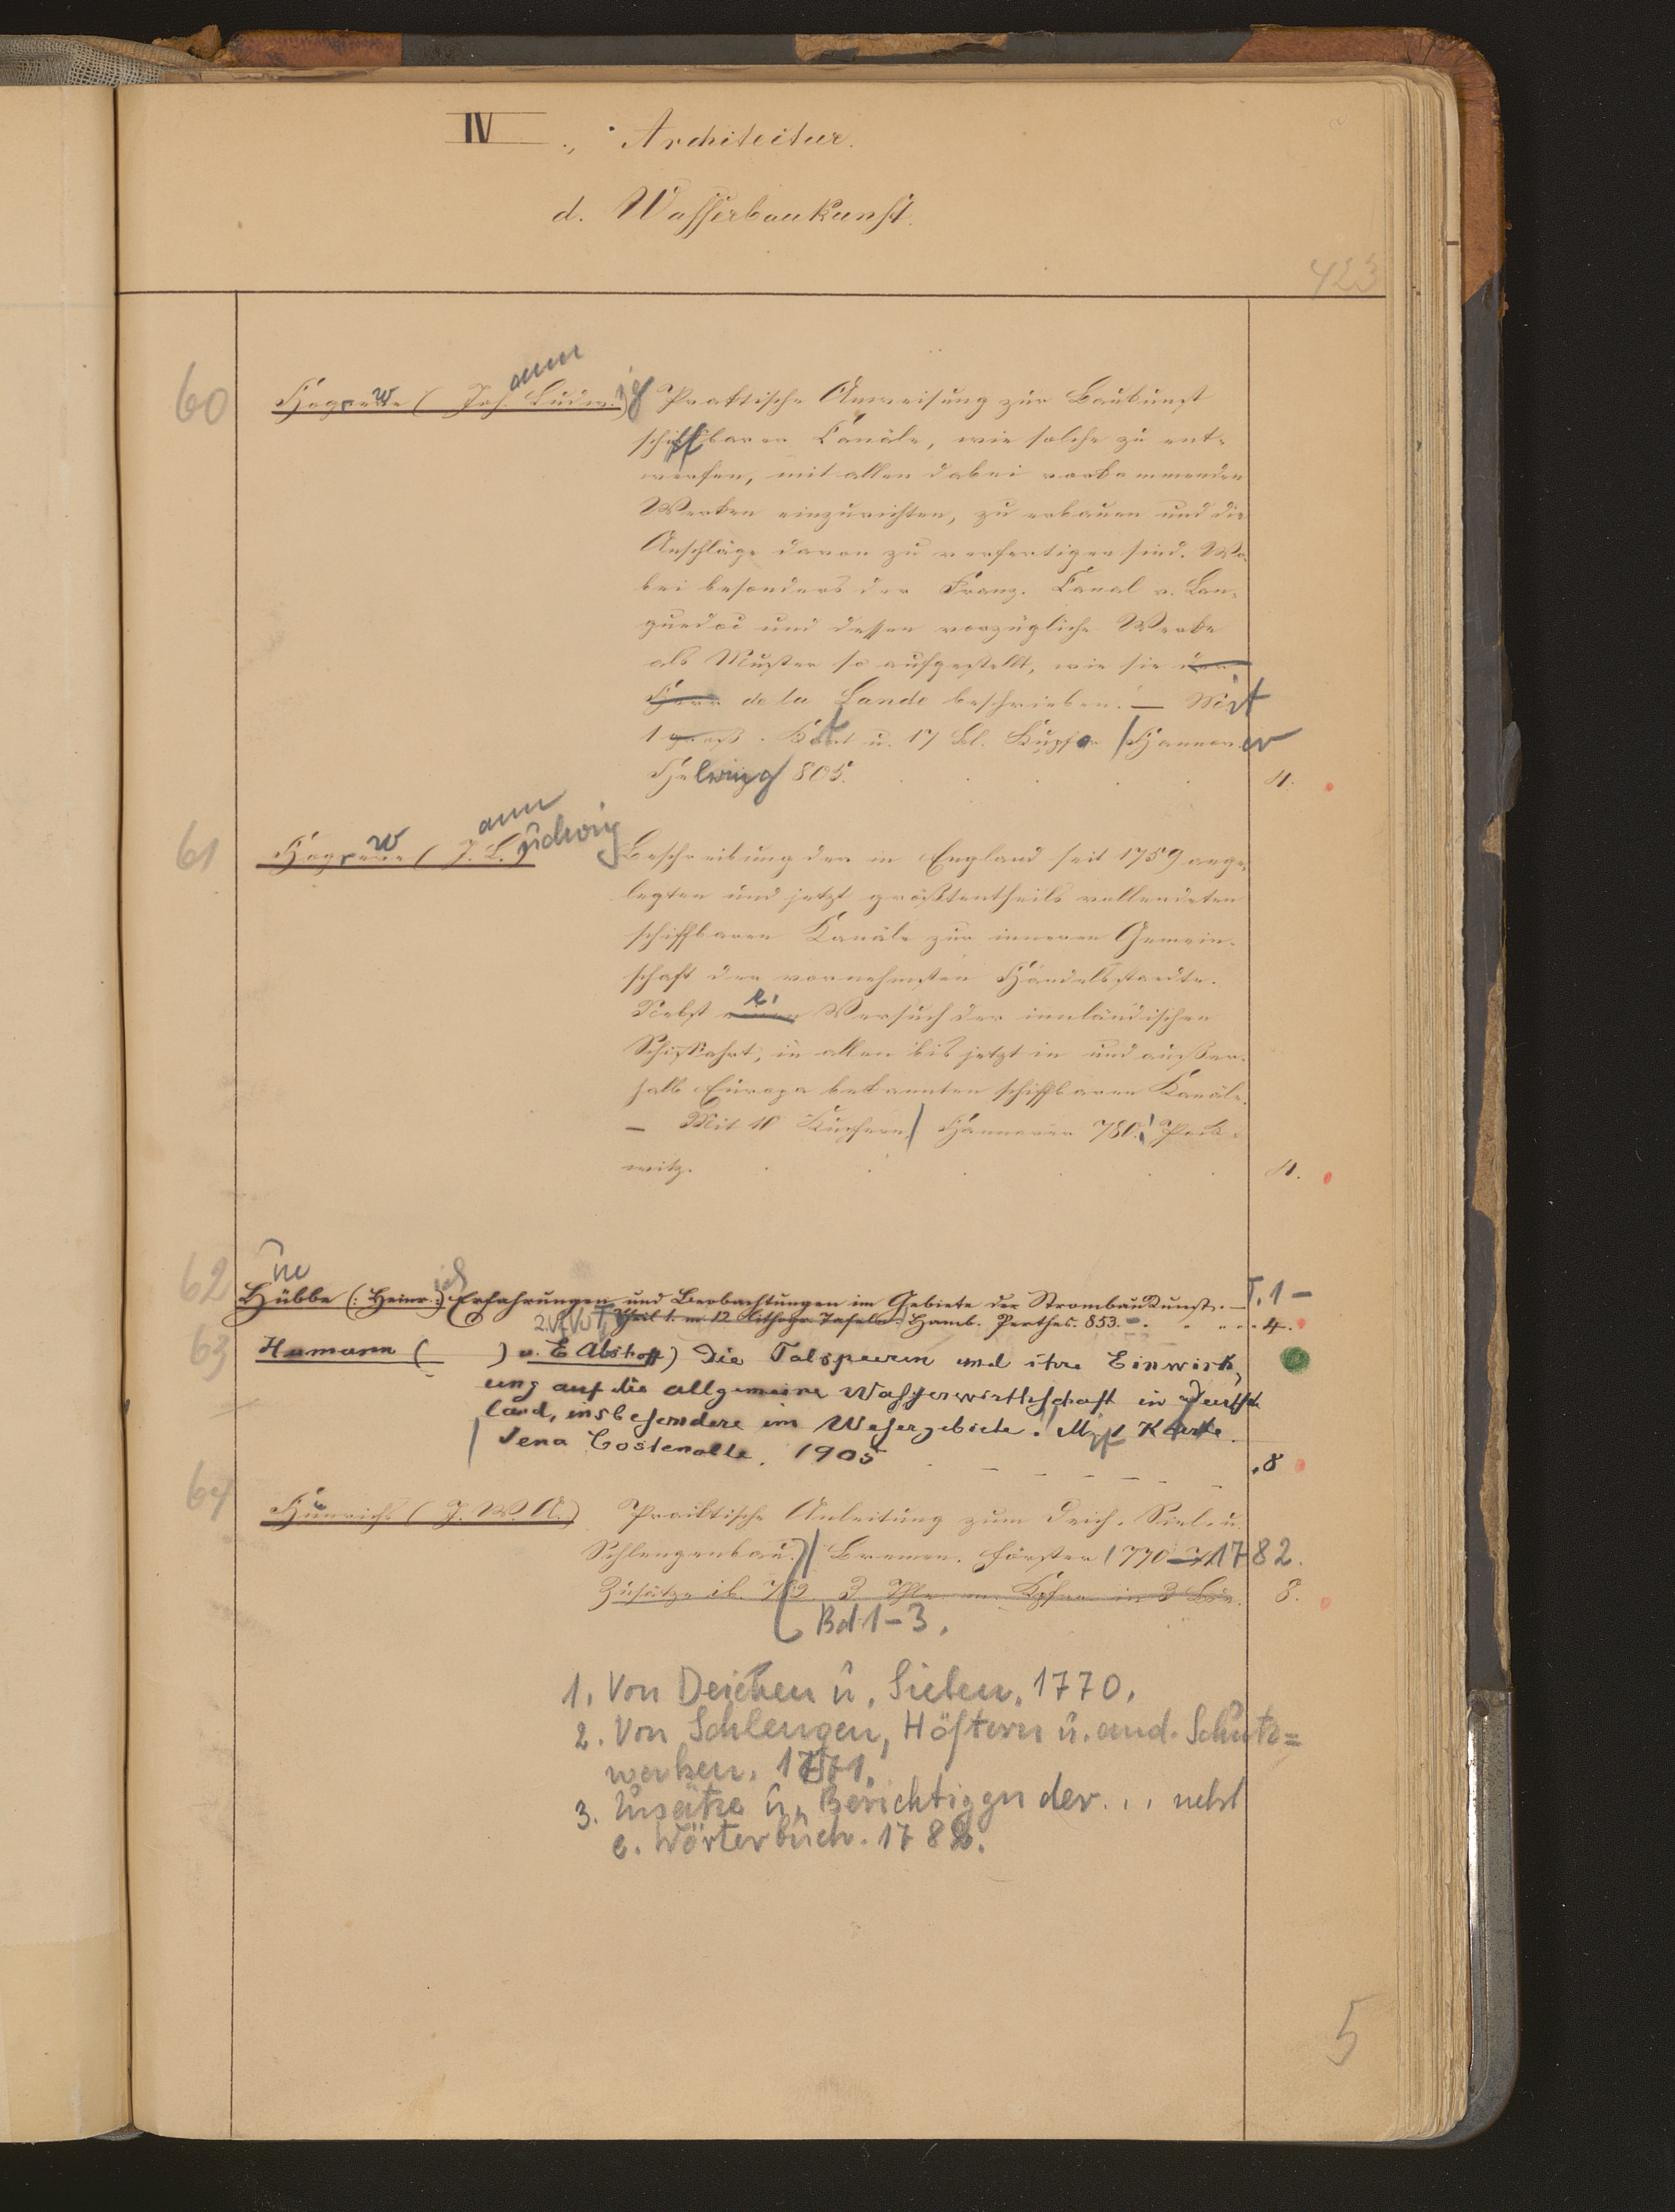 IV., Architectur.
d. Wasserbaukunst.
423
60 Hogrewe (Johann Ludwig) Praktische Anweisung zur Baukunst
schiffbarer Canäle, wie solche zu ent-
werfen, mit allen dabei vorkommenden
Werken einzurichten, zu erbauen und die
Anschläge davon zu verfertigen sind. Wo-
bei besonders der Franz. Canal v. Lan-
guedoc und dessen vorzügliche Werke
als Muster so aufgestellt, wie sie der
Herr de la Lande beschrieben. — Mit
1 groß. Kart u. 17 Bl. Kupfer / Hannover
Helwing 805. 4.
61 Hogrewe (J. L.) ann udwig Beschreibung der in England seit 1759 ange-
legten und jetzt größtentheils vollendeten
schiffbaren Kanäle zur inneren Gemein-
schaft der vornehmsten Handelsstaedte.
Nebst einen e. Versuch der innländischen
Schiffahrt, in allen bis jetzt in und außer-
halb Europa bekannten schiffbaren Kanäle.
— Mit 10 Kupfern / Hannover 780. Pock-
witz. 4.
62 Hübbe (: Heinrich :) Erfahrungen und Beobachtungen im Gebiete der Strombaukunst. — T. 1 —
Theil 1. m 12 lithogr. Tafeln. Hamb. Perthes. 853. — 4.
63 Humann ( ) u. E Abshoff) Die Talsperren und ihre Einwirk-
ung auf die allgemeine Wasserwirthschaft in Deutsch
land, insbesondere im Wesergebiete. Mit 1 Karte.
/ Jena Costenoble. 1905 8
64 Hunrichs (J. W. A.) Praiktische Anleitung zum Deich- Siel- u.
Schlengenbau. / Bremen. Förster 1770 — 1782.
Zusätze ib. 782 3 Thle m. Kpfrn in 3 Bde. 8.
Bd 1-3.
1. Von Deichen u. Sielen. 1770.
2. Von Schlengen, Höftern u. and. Schutz=
werken. 1771.
3. Zusätze u. Berichtiggn der... nebst
e. Wörterbuch. 1782.
5